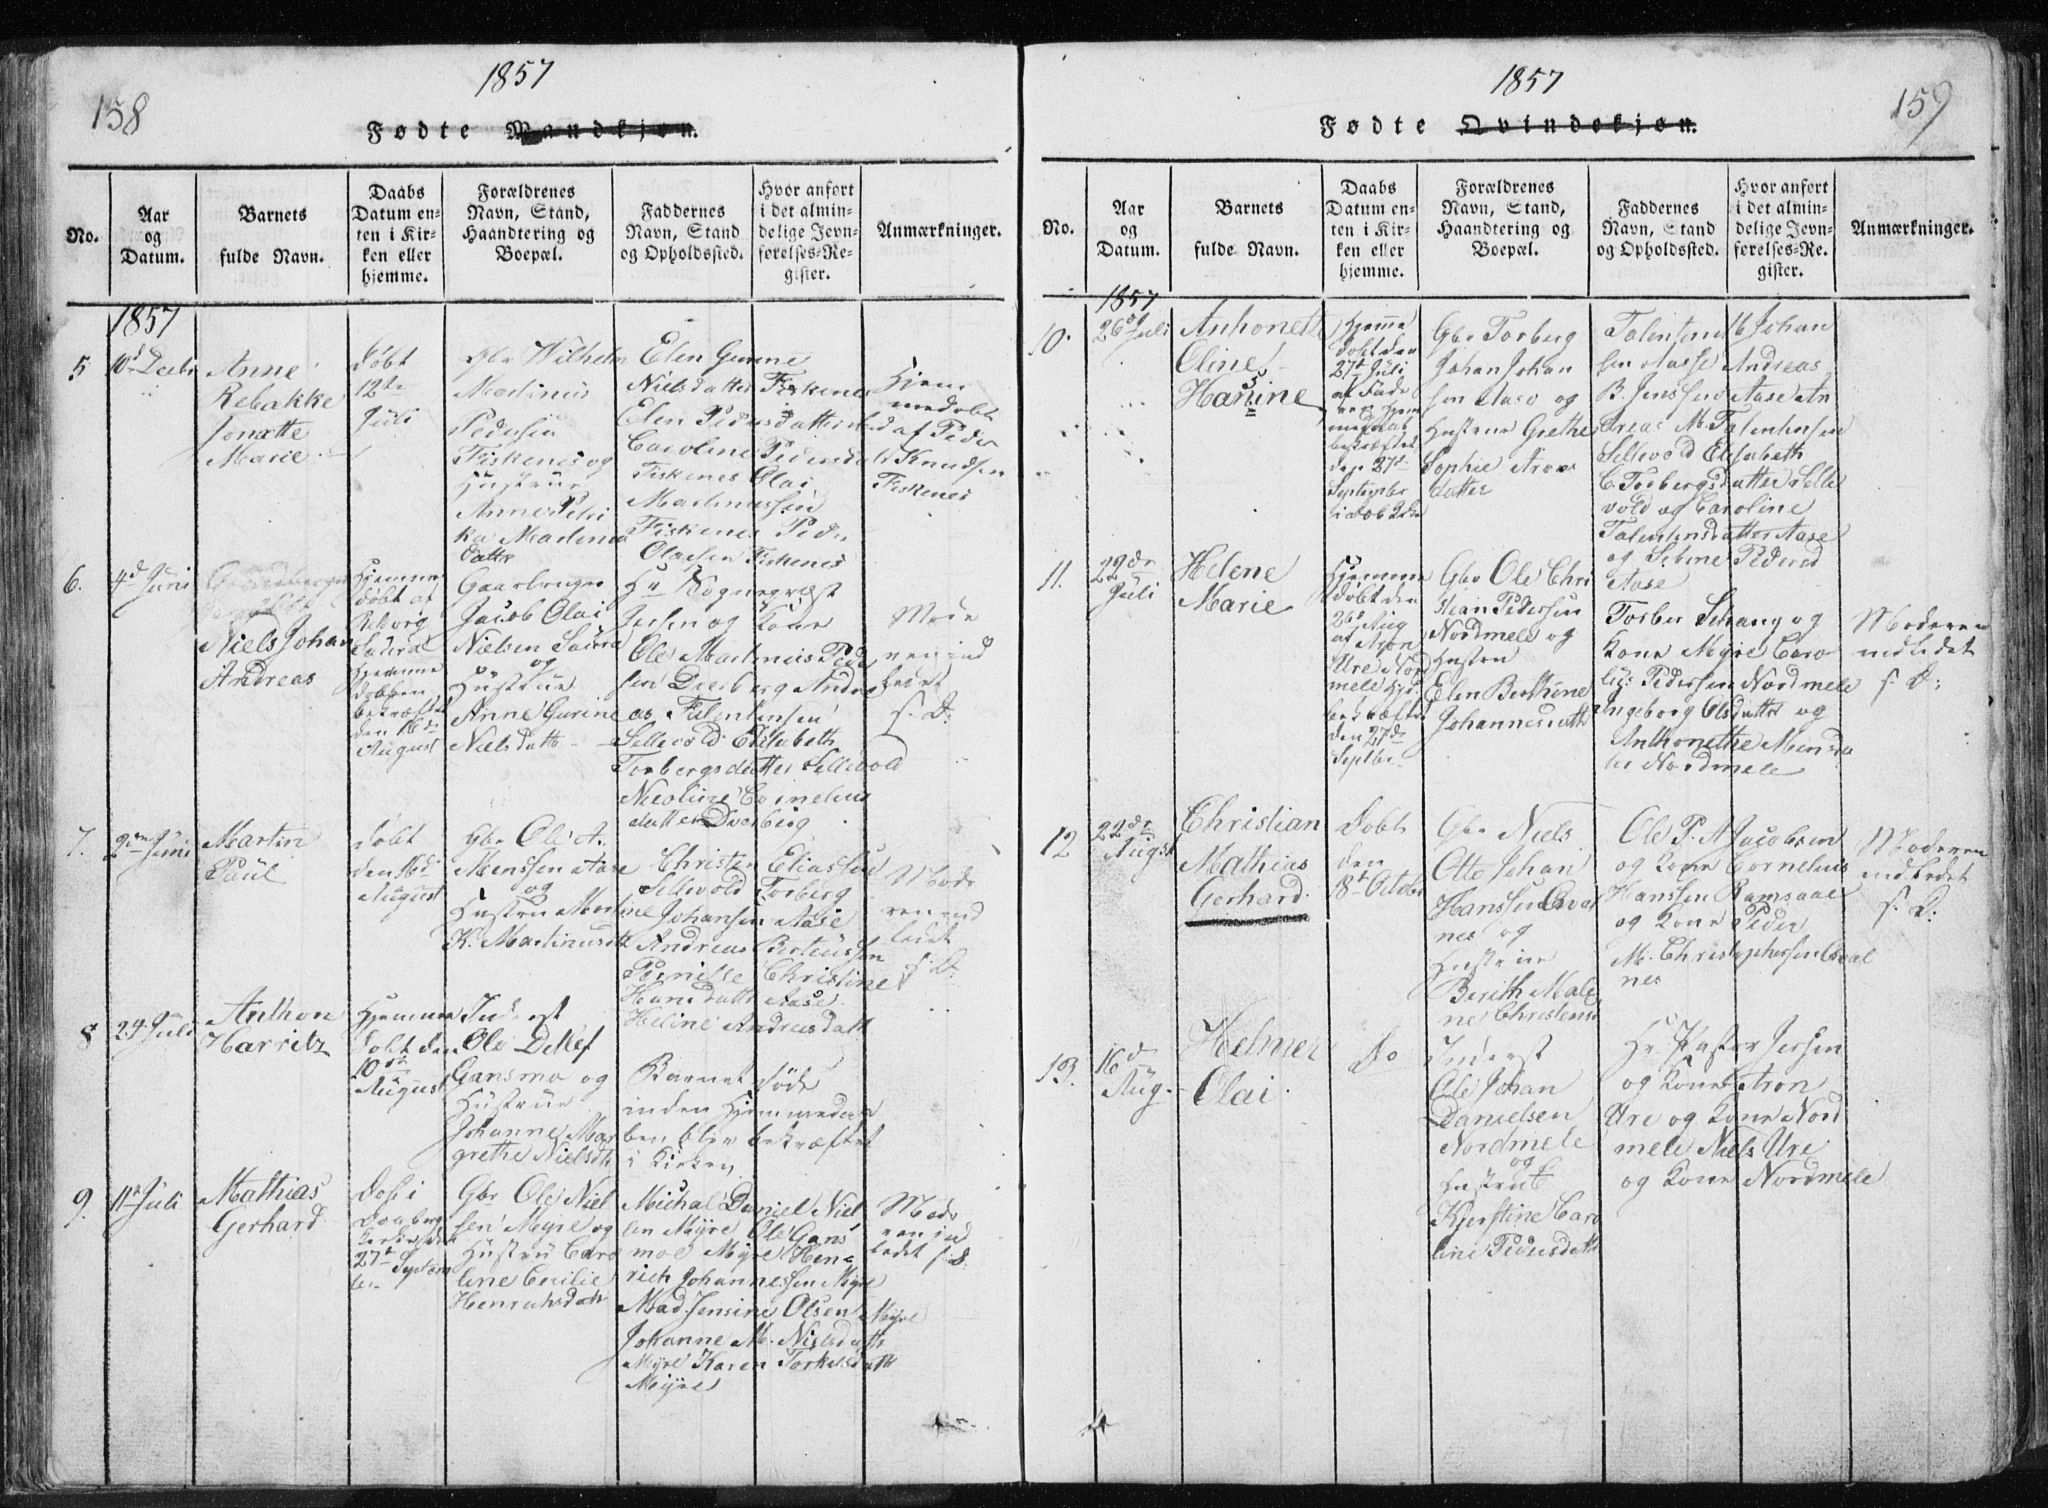 158
1857
Fødte Mandkjøn.
No.
Aar
og
Datum.
Barnets
fulde Navn.
Daabs
Datum en-
ten i Kir-
ken eller
hjemme.
Forældrenes
Navn, Stand,
Haandtering og
Boepæl.
Faddernes
Navn, Stand
og Opholdssted.
Hvor anført
i det almin-
delige Jevn-
førelses-Re-
gister.
Anmærkninger.
1857
5
Anne
Rebakke
Jonætte
Marie
døbt
12te
Juli
Gbr Wilhelm
Martinus
Pedersen
Fiskenes og
Hustrue
Anne Petri
ka Martinus
datter
Elen Gurine
Nielsdatter Fiskenes
Elen Pedersdatter
Caroline Pedersdatt
Fiskenes Olai
Martinussen
Fiskenes Peder
Olaisen Fiskenes
Hjem
medøbt
af Peder
Knudsen
Fiskenes
6.
4d Juni
Niels Johan
Andreas
Hjemme
døbt af
Hjemme
daaben
bekræftet
den 16de
August
Gaardbruger
Jacob Olai
Nielsen Saura
og
Hustrue
Anne Gurine
Nielsdatt
Hr Sogneprest
Jersen og Kone
Ole Martinus Peder
sen Dverberg Andre
as Falentinsen
Sellevold Elisabeth
Torbergsdatter Sellevold
Nicoline Cornelius
datter Dverberg
Mode
ren ind
ledet
s. D:
7.
2den Juni
Martin
Paul
døbt
den 16de
August
Gbr Ole A.
Menssen Aase
og
Hustru Martine
K. Martinusdtt
Christen Eliassen
Sellevold Torberg
Johansen Aase
Andreas Berteussen
Pernille Christine
Hansdatt Aase
Heline Andreasdatt
Mode
ren ind
ledet
s. D:
8
24 Juli
Anthon
Harritz
Hjemme
døbt den
10de
August
Inderst
Ole Detlef
Gansmo og
Hustrue
Johanne Mar
grethe Nielsdtt
Barnet døde
inden Hjemmedaa
ben blev bekræftet
i Kirken
9.
11te Juli
Mathias
Gerhard
Døbt i
Kirke den
27de Septem
ber
Gbr Ole Niel
sen Myre og
Hustru Caro
line Cecilie
Henrichsdatt
Michal Daniel Niel
sen Myre Ole Gans
moe Myre Hen-
rich Johannessen Myre
Mad. Jensine Olsen Myre
Johanne M. Nielsdatt
Myre Karen Torkelsdatt
Myre
Mode
ren ind
ledet s. D.
159
1857
Fødte Qvindekjøn.
No.
Aar
og
Datum.
Barnets
fulde Navn.
Daabs
Datum en-
ten i Kir-
ken eller
hjemme.
Forældrenes
Navn, Stand,
Haandtering og
Boepæl.
Faddernes
Navn, Stand
og Opholdssted.
Hvor anført
i det almin-
delige Jevn-
førelses-Re-
gister.
Anmærkninger.
1857
10.
26de Juli
Anthonette
Oline
Hansine
Hjemme
døbt den
27de Juli
af Fade
ren Hjem
medaab
bekræftet
den 27de
September
Gbr Torberg
Johan Johan
sen Aase og
Hustrue Grethe
Sophie Arons
datter
Falentin M Johan
sen Aase Andreas
B. Jenssen Aase An
dreas M. Falentinsen
Sellevold Elisabeth
C. Torbergsdatter Selle
vold og Caroline
Falentinsdatter Aase
og Serine Pedersd
Aase
11.
22de
Juli
Helene
Marie
Hjemme
døbt den
26de Aug
af Aron
Ure Nord
mele Hjd.
bekræftet
den 27de
Septbr
Gbr Ole Chri
stian Pedersen
Nordmele og
Hustru
Elen Berthine
Johannesdatt
Torber Schang og
Kone Myre Caro
lius Pedersen Nordmele
Ingeborg Olsdatter og
Anthonethe Mensda
ter Nordmele
Moderen
indledet
s. D:
12
22de
August
Christian
Mathias
Gerhard.
Døbt
den
18de October
Gbr Niels
Otto Johan
Hanssen Kval
nes og
Hustrue
Berith Male
ne Christensd
Ole P. A Jacobsen
og Kone Cornelius
Hanssen Ramsaae
og Kone Peder
M. Christophersen Kval
nes
Moderen
indledet
s. D:
13.
16d
Aug.
Helmer
Olai
Do
Inderst
Ole Johan
Danielsen
Nordmele
og
Hustrue
Kjerstine Caro
line Pedersdatt
Hr. Pastor Jersen
og Kone Aron
Ure og Kone Nord
mele Niels Ure
og Kone Nordmele